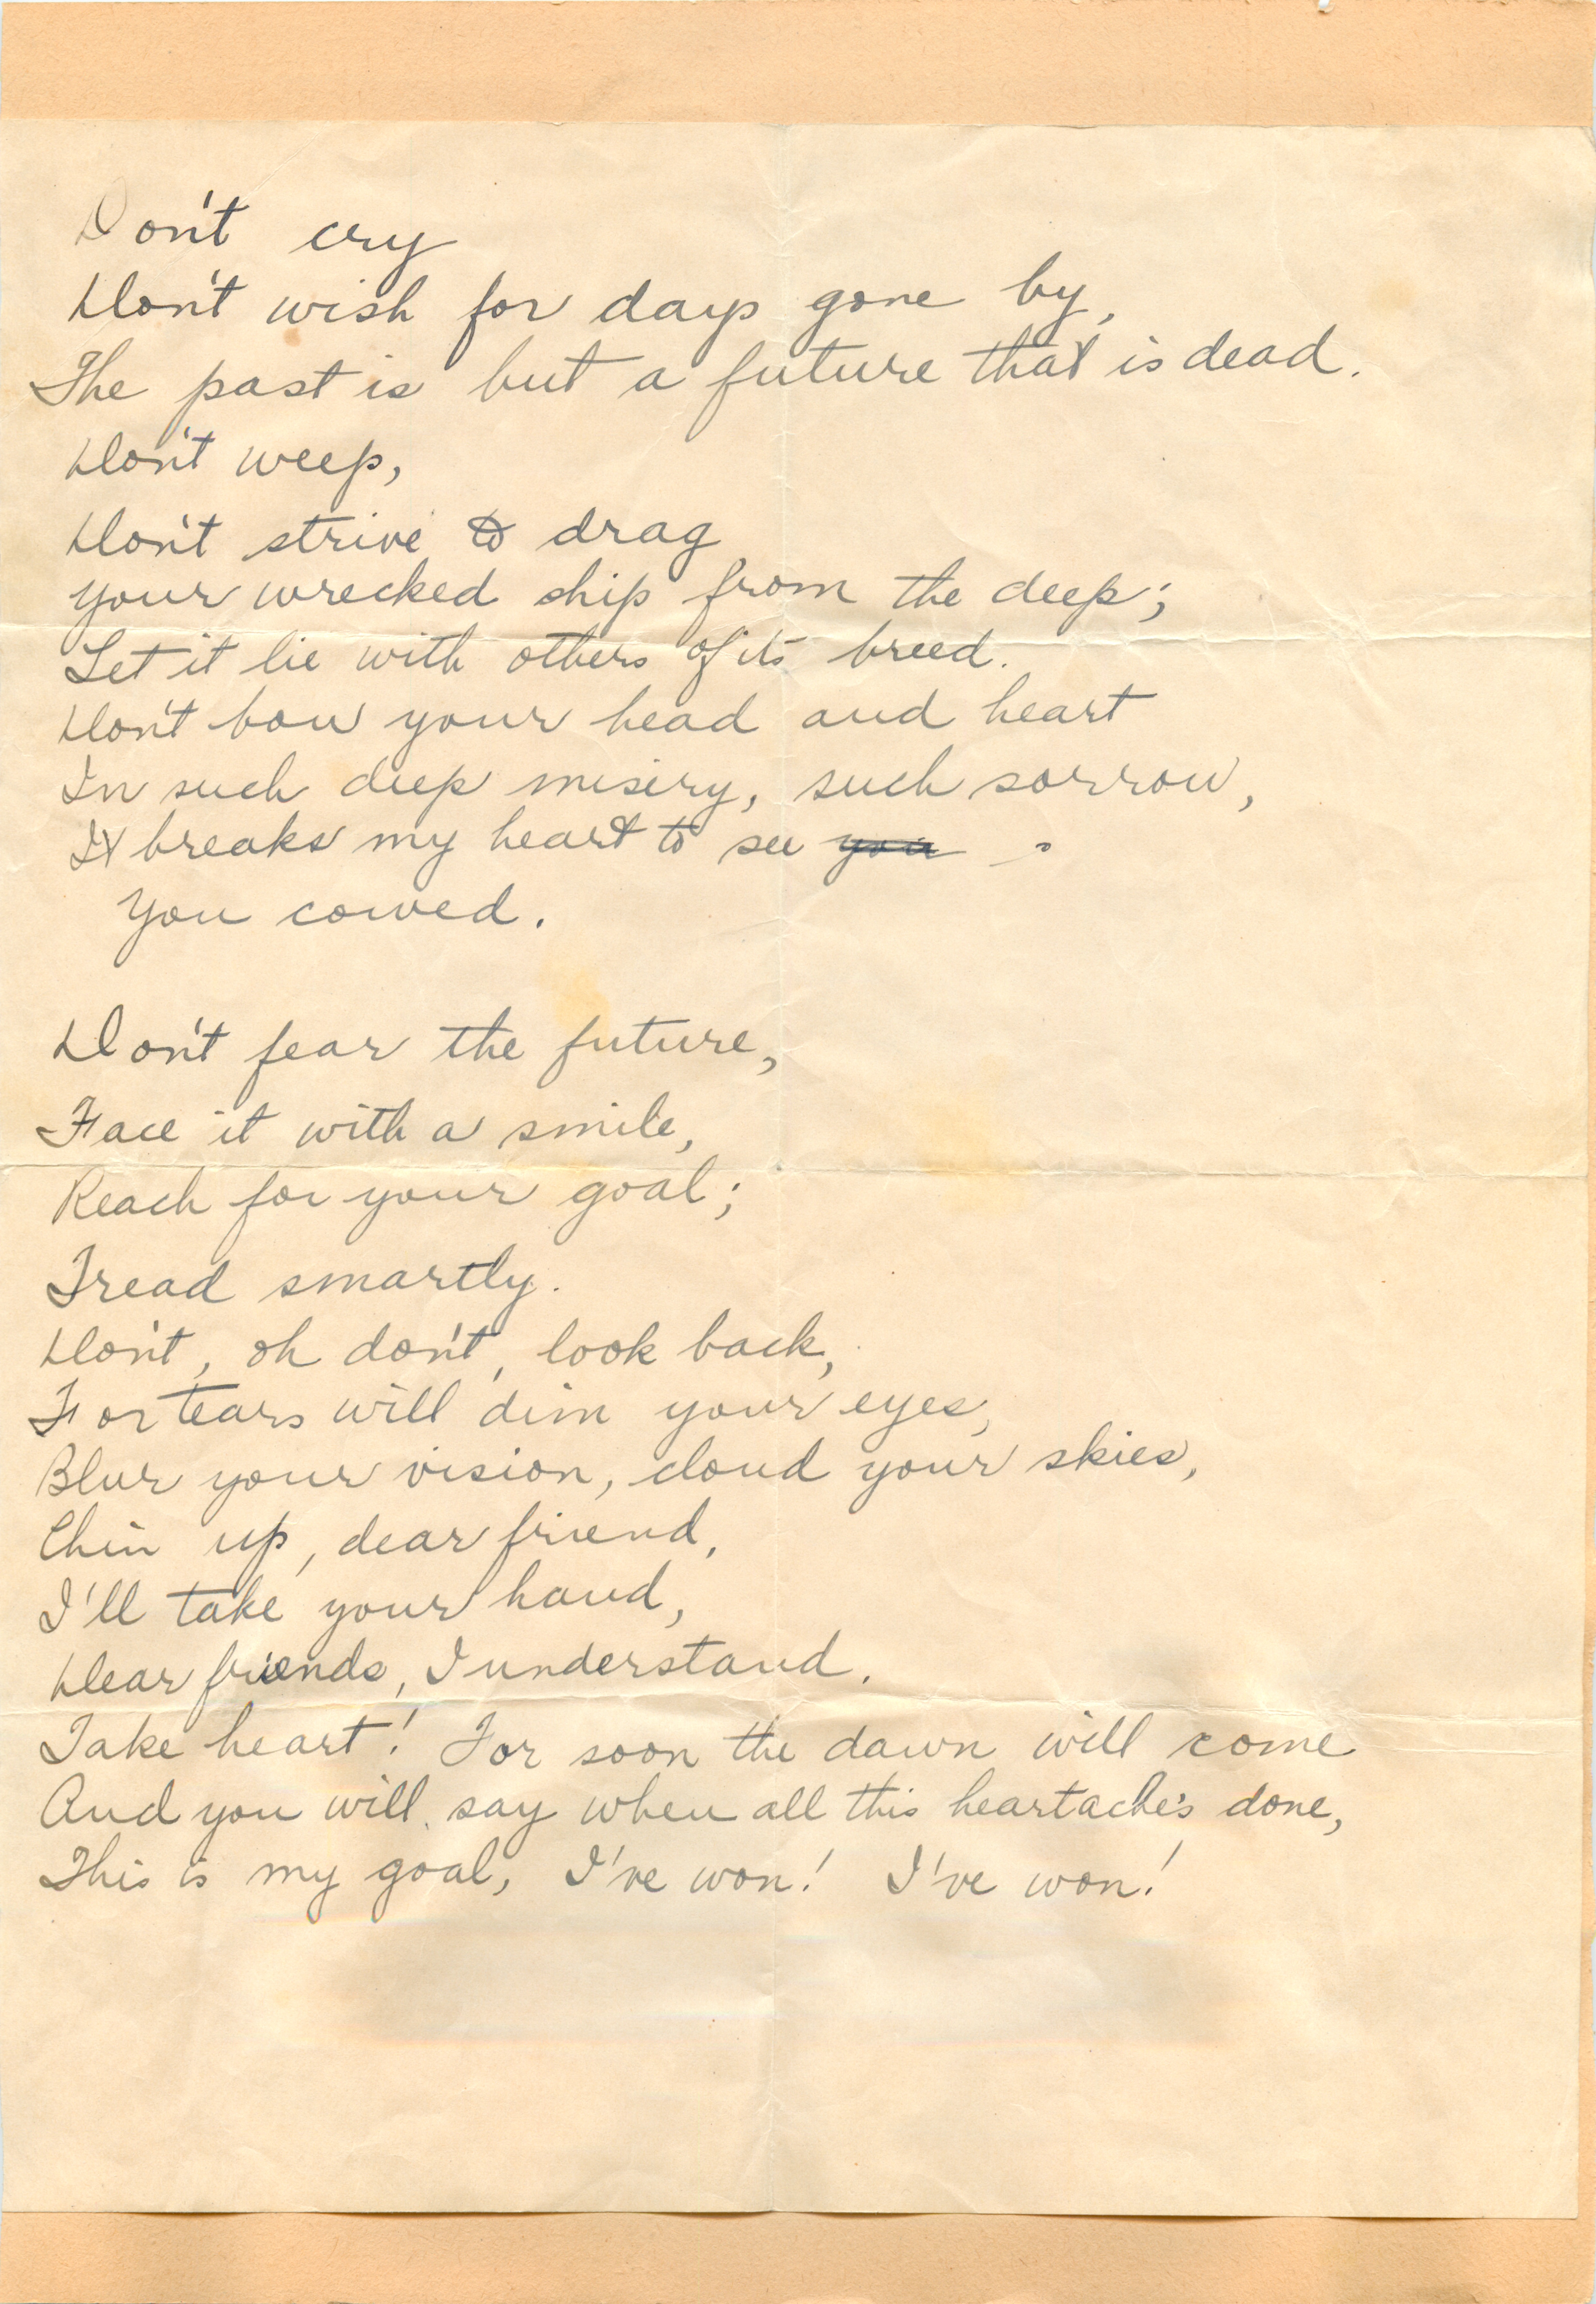 Don't cry
Don't wish for days gone by,
The past is but a future that is dead.
Don't weep,
Don't strive to drag
your wrecked ship from the deep;
Let it lie with others of its breed.
Don't bow your head and heart
In such deep misery, such sorrow,
It breaks my heart to see you
You cowed.
Don't fear the future,
Face it with a smile,
Reach for your goal;
Tread smartly.
Don't, oh don't, look back,
For tears will dim your eyes,
Blur your vision, cloud your skies,
Chin up, dear friend,
I'll take your hand,
Dear friends, I understand.
Take heart! For soon the dawn will come
And you will say when all this heartache's done,
This is my goal, I've won! I've won!